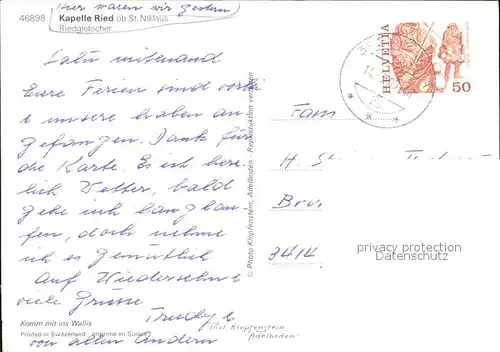 Hier waren wir gestern
46898 Kapelle Ried ob St. Niklaus
Riedgletscher
Salü mitenand
Eure Ferien sind vorbei
u unsere haben an
gefangen. Dank für
die Karte. Es ist herr
lich Wetter, bald
gehe ich langlau-
fen, doch nehme
ich es gemütlich
Auf Wiedersehn u
viele Grüsse
Trudy u
von allen Anderen
Komm mit ins Wallis
Printed in Switzerland - Imprimé en Suisse
© Photo Klopfenstein, Adelboden - Reproduktion verboten
Phot Klopfenstein
"Adelboden"
HELVETIA
50
Fam
H.
3414
privacy protection